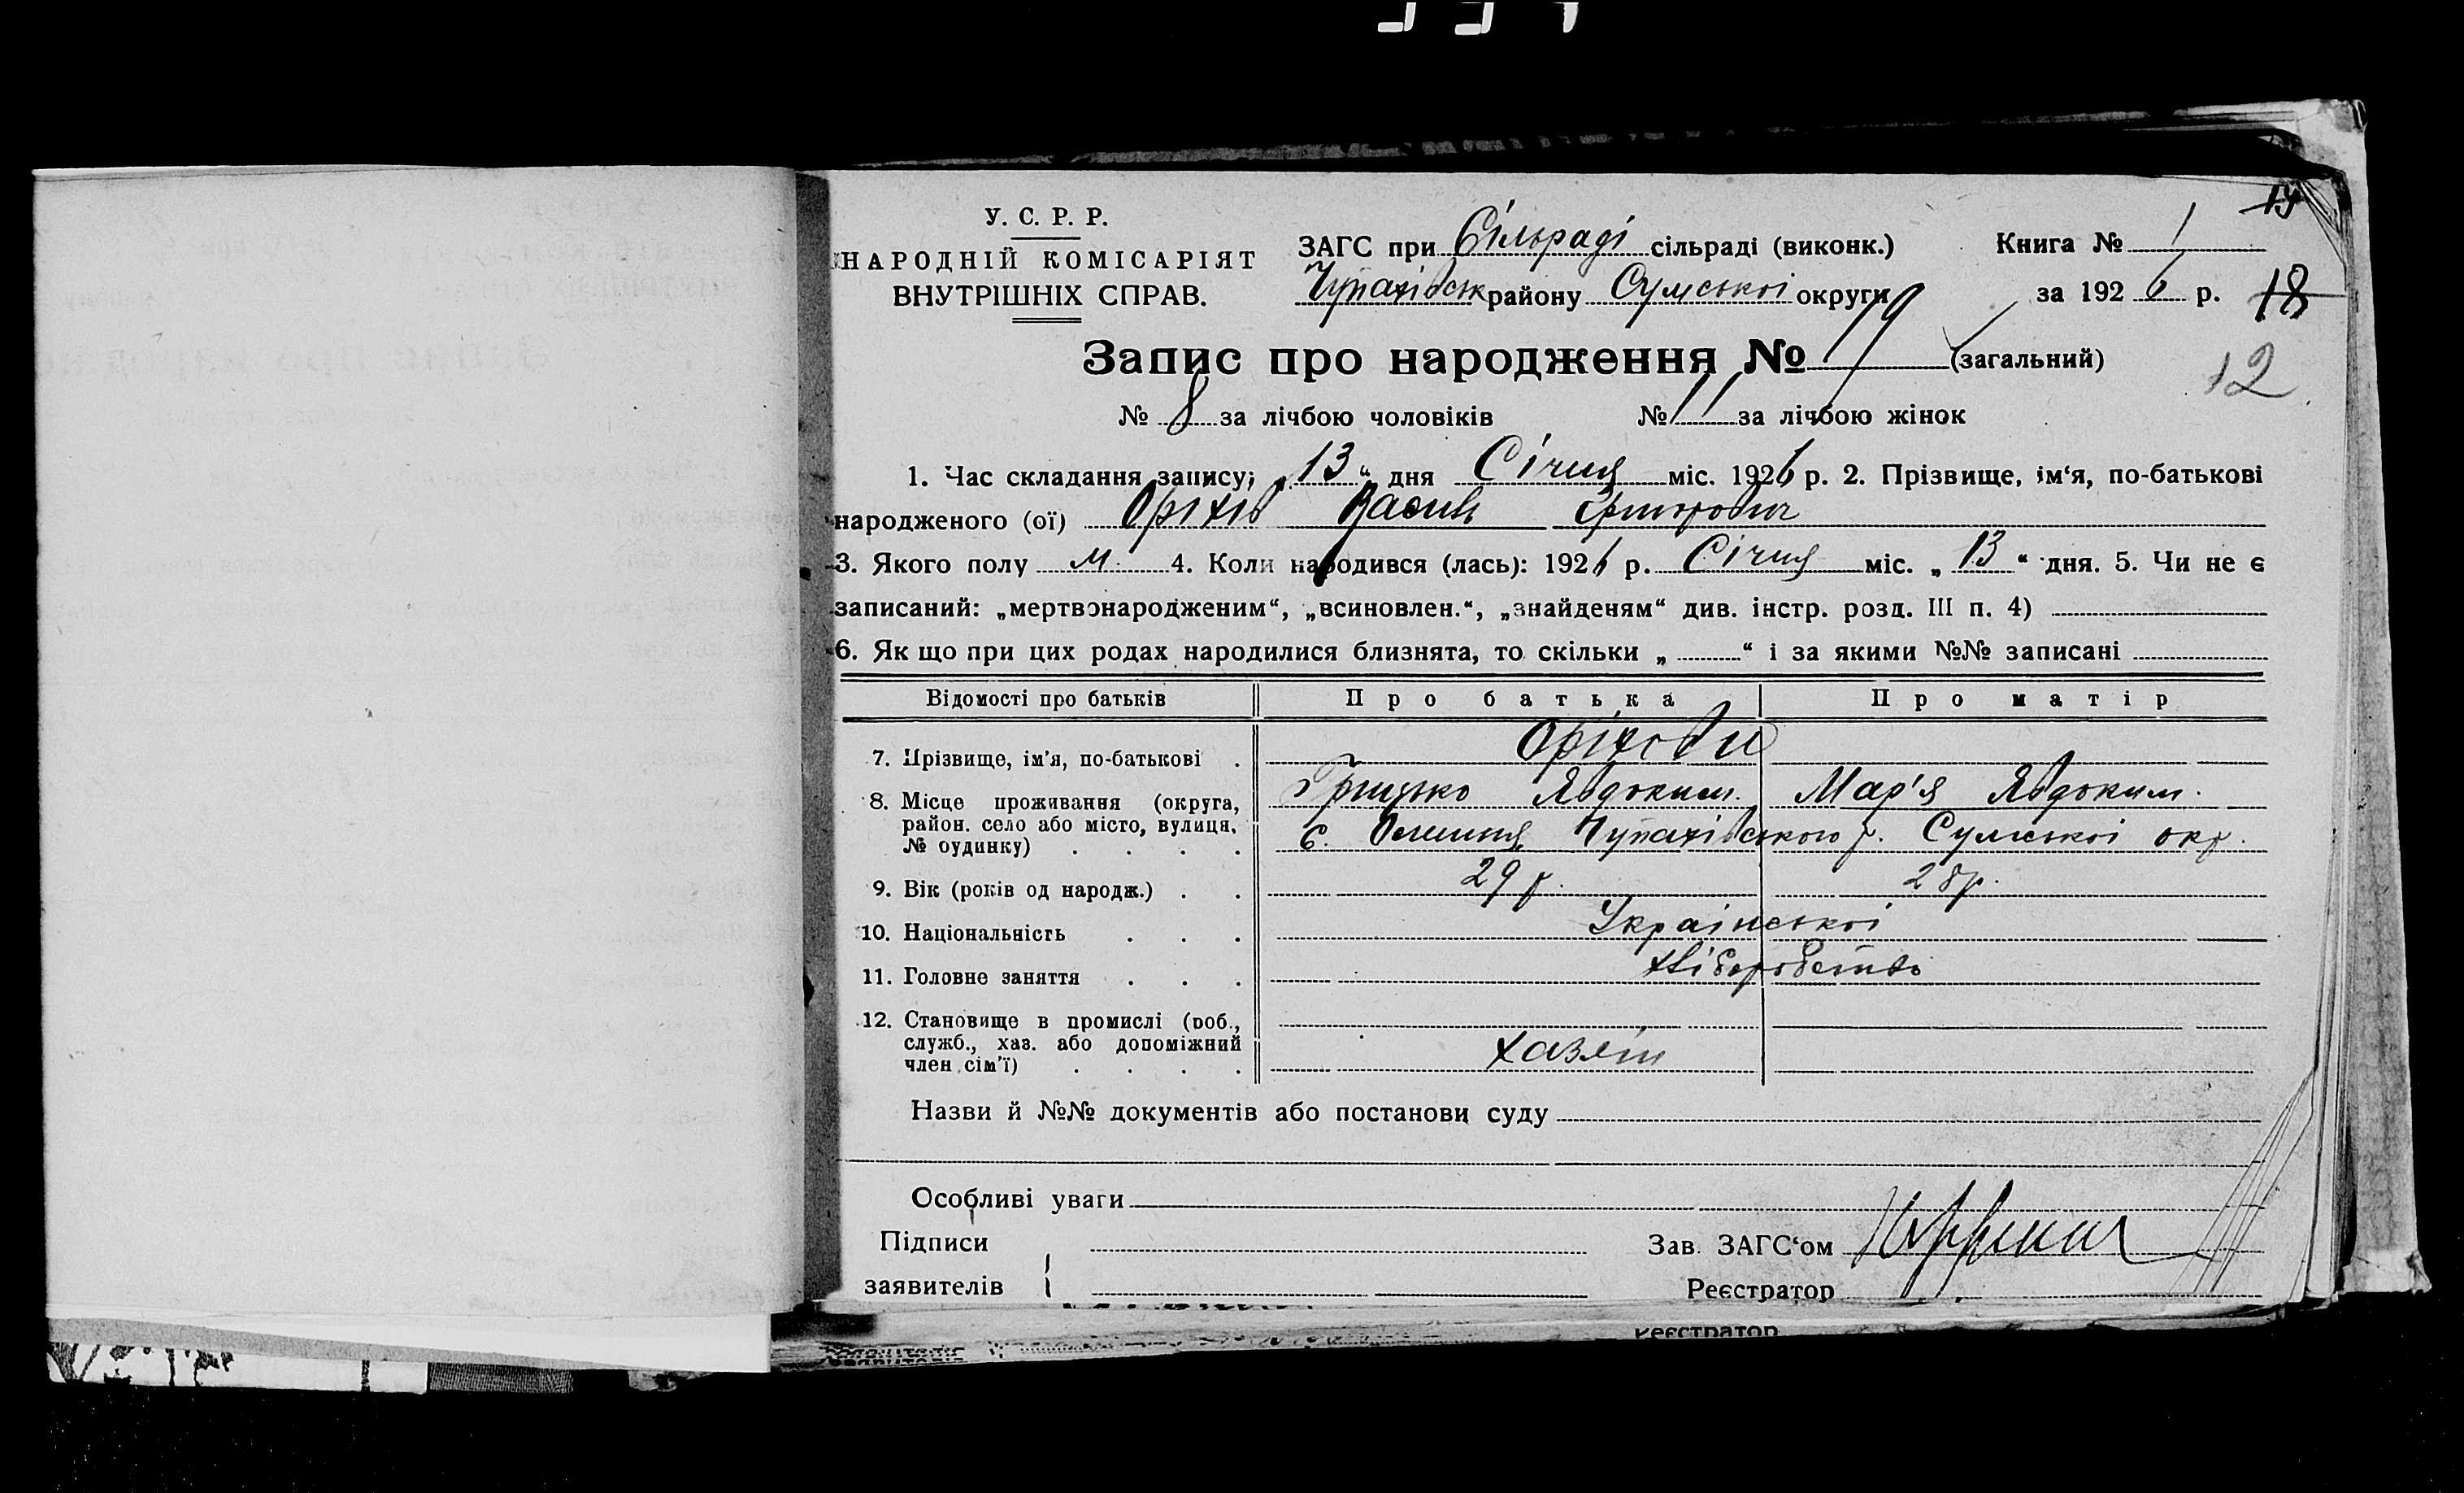 19
У. С. Р. Р.
НАРОДНІЙ КОМІСАРІЯТ
ВНУТРІШНІХ СПРАВ.
ЗАГС при Сільраді сільраді (виконк.)
Книга № 1
Чупахівськ району Сумської округи
за 1926 р.
18
Запис про народження № 19 (загальний)
12
№ 8 за лічбою чоловіків № 11 за лічбою жінок
1. Час складання запису; „13“ дня Січня міс. 1926 р. 2. Прізвище, ім‘я, по-батькові
народженого (ої) Оріхів Василь Григорович
3. Якого полу м. 4. Коли народився (лась): 1926 р. Січня міс. „13“ дня. 5. Чи не є
записаний: „мертвонародженим“, „всиновлен.“, „знайденям“ див. інстр. розд. III п. 4)
6. Як що при цих родах народилися близнята, то скільки „ “ і за якими №№ записані
Відомості про батьків Про батька Про матір
7. Прізвище, ім’я, по-батькові . Оріхови
Грицько Явдоким. Мар'я Явдоким.
8. Місце проживання (округа,
район. село або місто, вулиця,
№ будинку) . . . .
с. Чупахівського р. Сумської окр.
9. Вік (років од народж.) . . 29 р. 28 р.
10. Національність . . . Української
11. Головне заняття . . . Хліборобство
12. Становище в промислі (роб.,
служб., хаз. або допоміжний
член сім’ї) . . . . хазяїн
Назви й №№ документів або постанови суду
Особливі уваги
Підписи
заявителів
Зав. ЗАГС‘ом
Реєстратор
Реєстратор